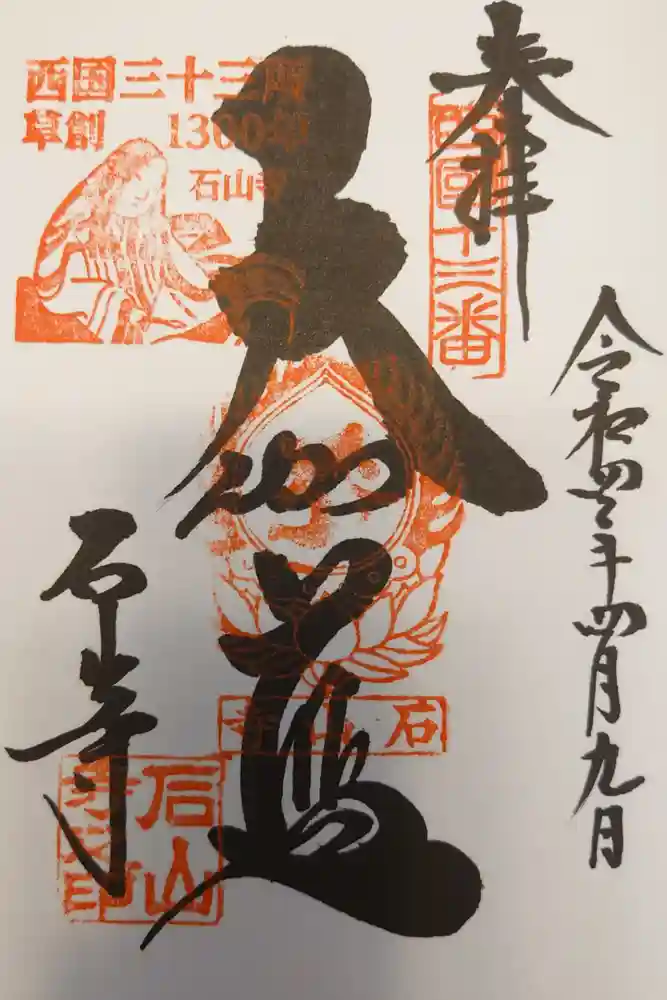 奉拝
西國十三番
令和四年四月九日
大伽藍
西国三十三所
草創 1300年
石山寺
石山寺
石山寺
石山